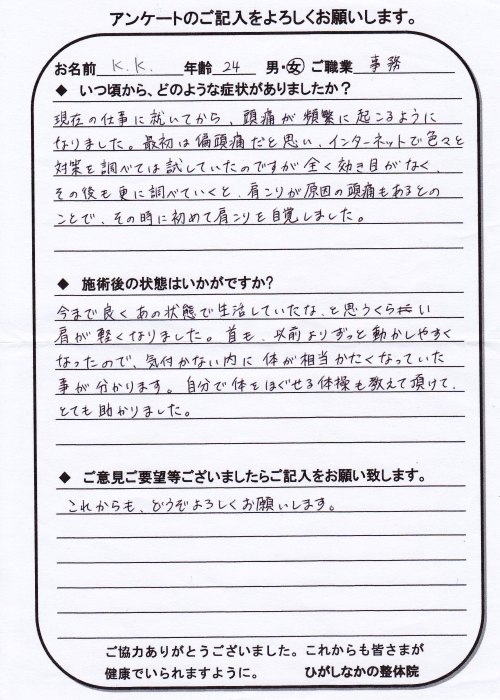 アンケートのご記入をよろしくお願いします。
お名前 K.K. 年齢 24 男・女 ご職業 事務
◆ いつ頃から、どのような症状がありましたか？
現在の仕事に就いてから、頭痛が頻繁に起こるように
なりました。最初は偏頭痛だと思い、インターネットで色々と
対策を調べては試していたのですが全く効き目がなく、
その後も更に調べていくと、肩こりが原因の頭痛もあるとの
ことで、その時に初めて肩こりを自覚しました。
◆ 施術後の状態はいかがですか?
今まで良くあの状態で生活していたな、と思うくらい
肩が軽くなりました。首も、以前よりずっと動かしやすく
なったので、気付かない内に体が相当かたくなっていた
事が分かります。自分で体をほぐせる体操も教えて頂けて、
とても助かりました。
◆ ご意見ご要望等ございましたらご記入をお願い致します。
これからも、どうぞよろしくお願いします。
ご協力ありがとうございました。これからも皆さまが
健康でいられますように。 ひがしなかの整体院